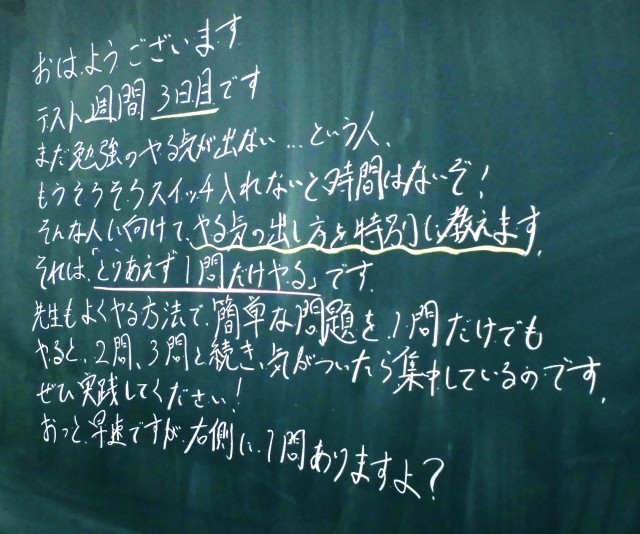 おはようございます
テスト週間 3日目です
まだ勉強のやる気が出ない…という人、
もうそろそろスイッチ入れないと、時間はないぞ!
そんな人に向けて、やる気の出し方を特別に教えます。
それは、「とりあえず1問だけやる」です。
先生もよくやる方法で、簡単な問題を、1問だけでも
やると、2問、3問と続き、気がついたら集中しているのです。
ぜひ実践してください!
おっと、早速ですが、右側に、1問ありますよ?